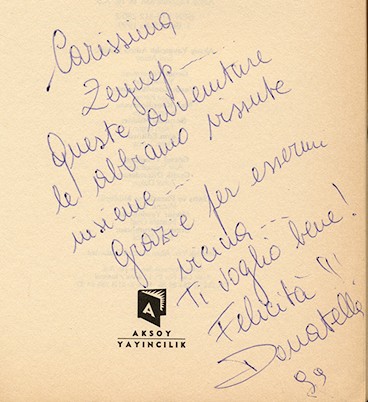 Carissima
Zeynep---
Queste avventure
le abbiamo vissute
insieme---
Grazie per essermi
vicina---
Ti voglio bene!
Felicità!!!
Donatella
99
A
AKSOY
YAYINCILIK